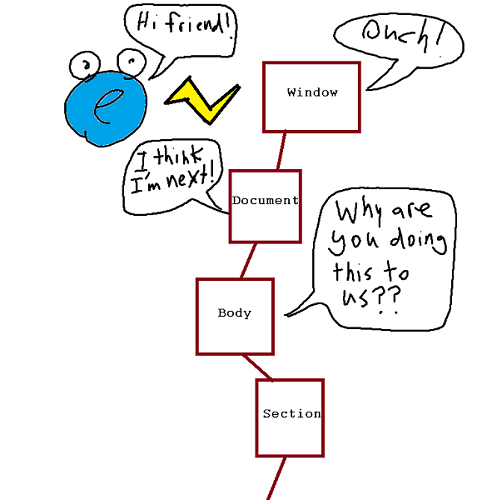 Hi friend!
Ouch!
e
Window
I think
I'm next!
Document
Why are
you doing
this to
us??
Body
Section